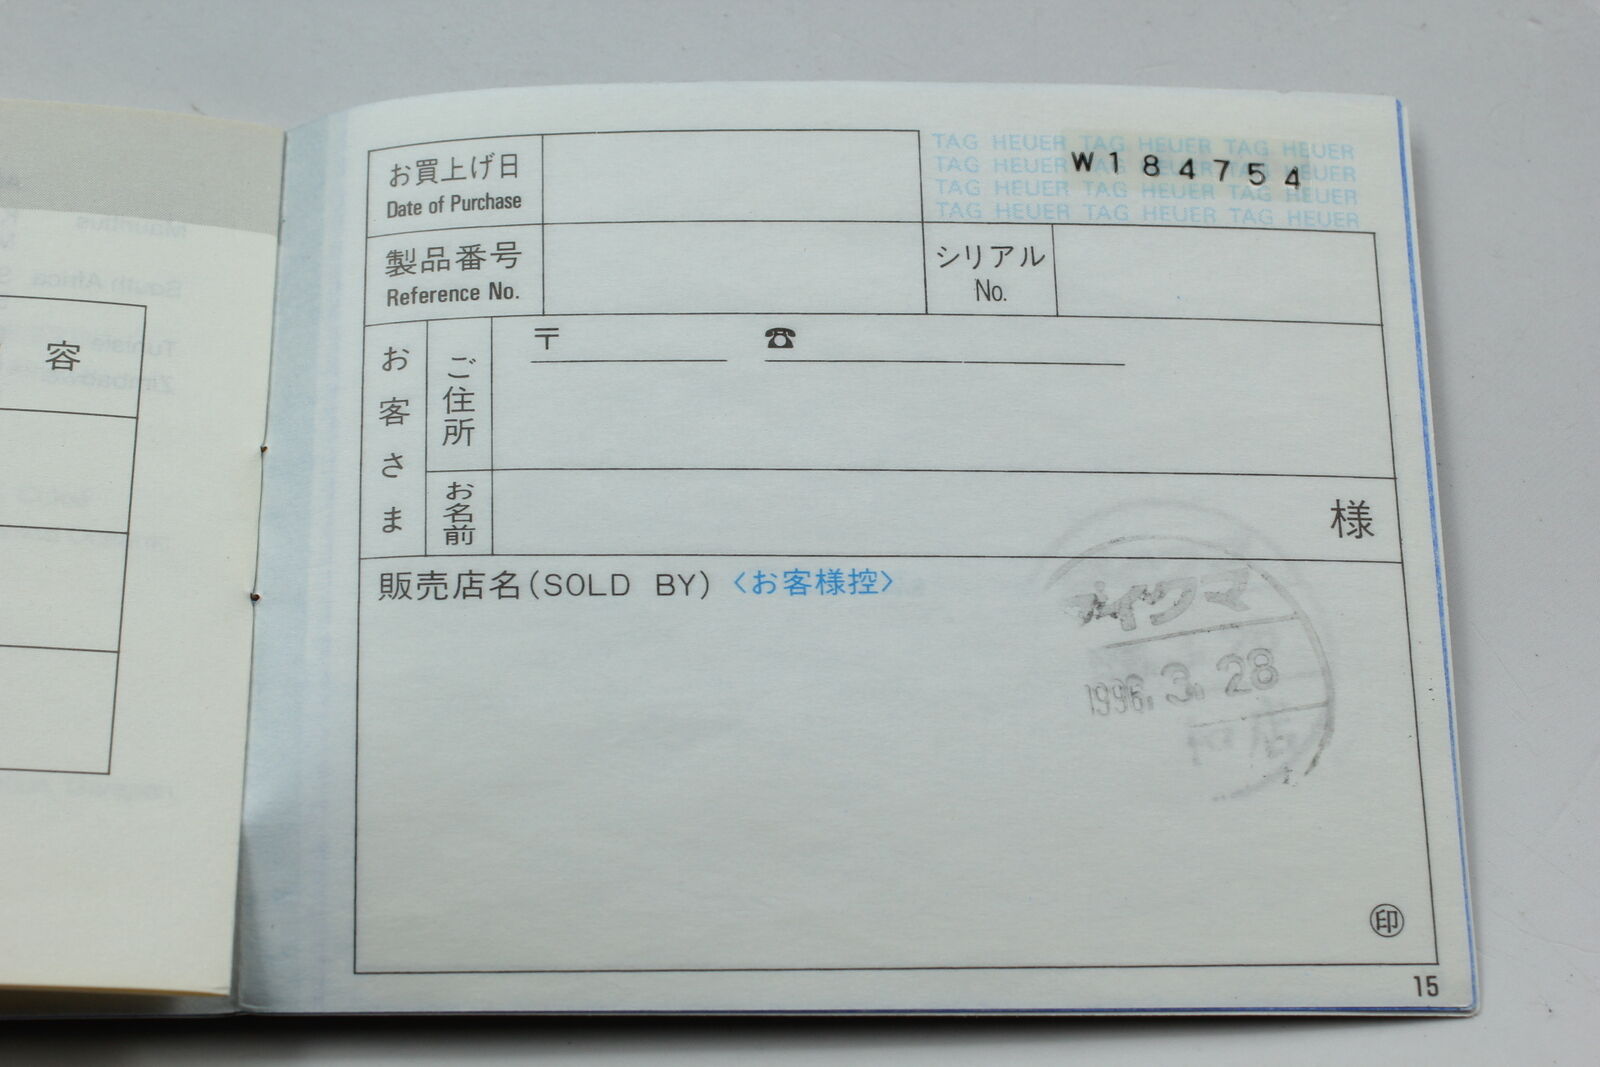 容
お買上げ日
Date of Purchase
TAG HEUER TAG HEUER TAG HEUER
TAG HEUER TAG HEUER TAG HEUER
TAG HEUER TAG HEUER TAG HEUER
TAG HEUER TAG HEUER TAG HEUER
W184754
製品番号
Reference No.
シリアル
No.
お客さま
ご住所
〒 ☎
お名前
様
販売店名(SOLD BY) 〈お客様控〉
1996.3.28
㊞
15